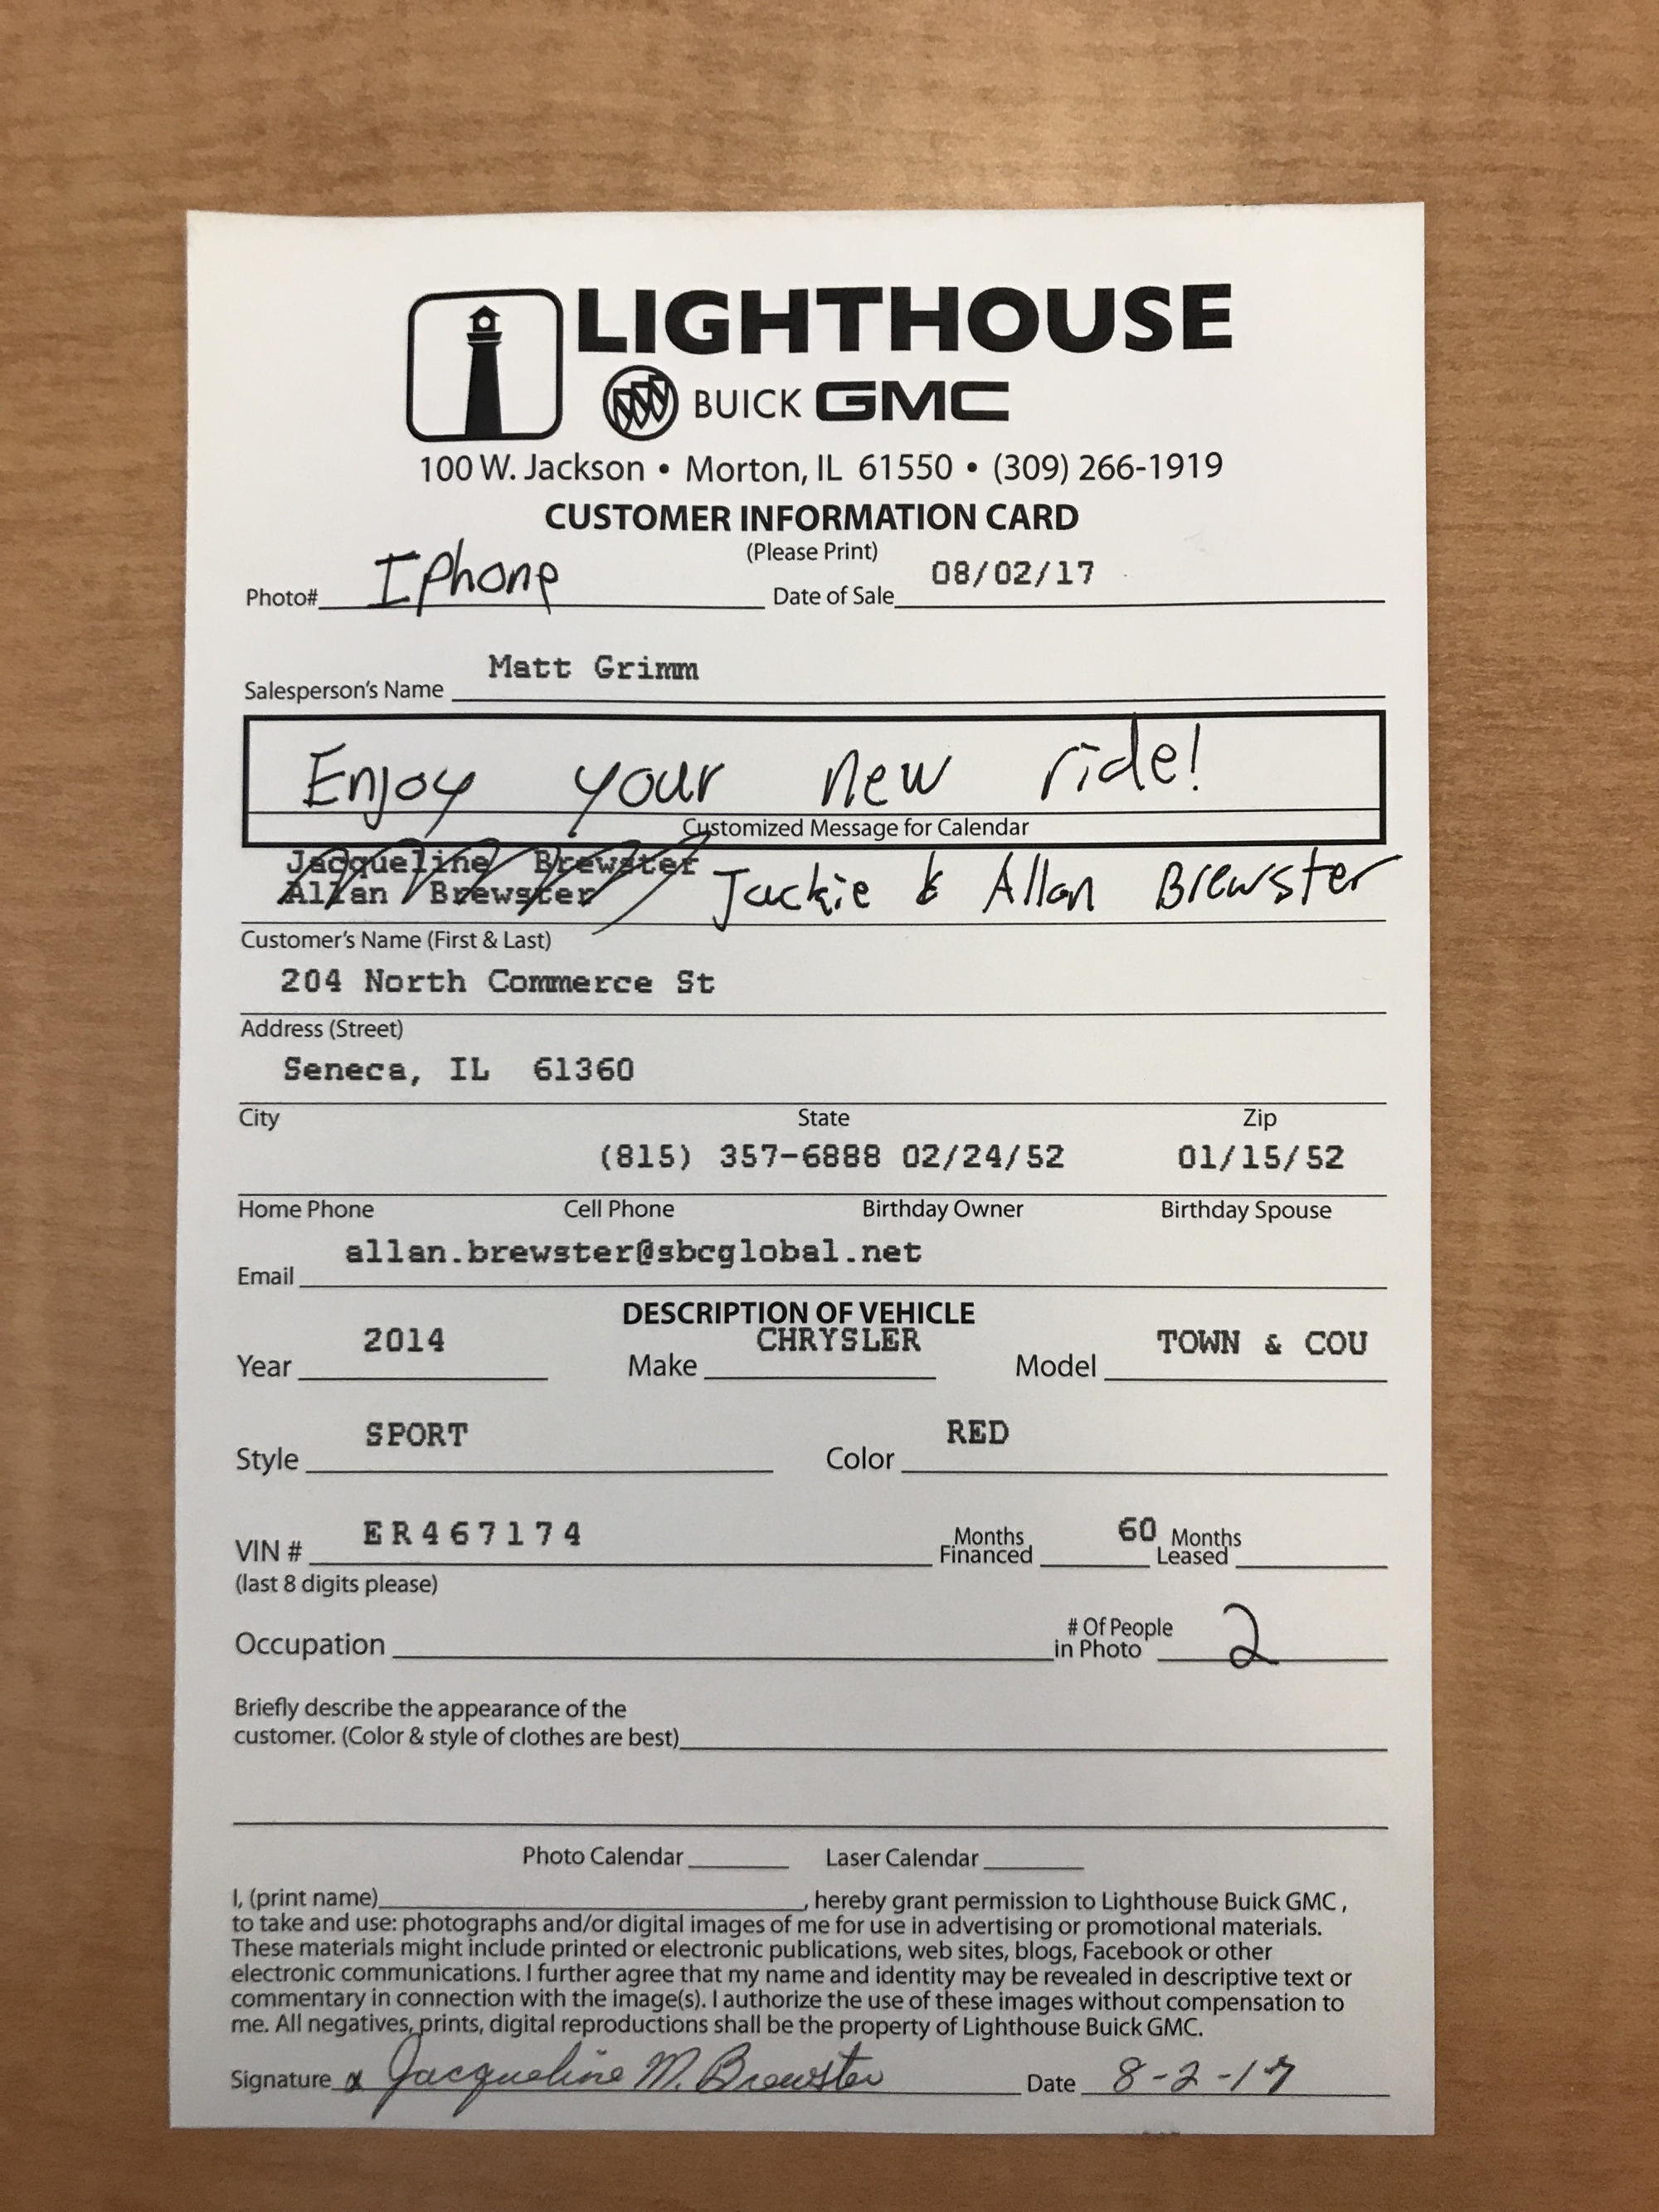 LIGHTHOUSE
BUICK GMC
100 W. Jackson • Morton, IL 61550 • (309) 266-1919
CUSTOMER INFORMATION CARD
(Please Print)
Photo# IPhone Date of Sale 08/02/17
Salesperson's Name Matt Grimm
Enjoy your new ride!
Customized Message for Calendar
Jacqueline Brewster
Allan Brewster Jackie & Allan Brewster
Customer's Name (First & Last)
204 North Commerce St
Address (Street)
Seneca, IL 61360
City State Zip
(815) 357-6888 02/24/52 01/15/52
Home Phone Cell Phone Birthday Owner Birthday Spouse
Email allan.brewster@sbcglobal.net
DESCRIPTION OF VEHICLE
Year 2014 Make CHRYSLER Model TOWN & COU
Style SPORT Color RED
VIN # ER467174 Months Financed 60 Months Leased
(last 8 digits please)
Occupation # Of People in Photo 2
Briefly describe the appearance of the
customer. (Color & style of clothes are best)
Photo Calendar Laser Calendar
I, (print name) , hereby grant permission to Lighthouse Buick GMC ,
to take and use: photographs and/or digital images of me for use in advertising or promotional materials.
These materials might include printed or electronic publications, web sites, blogs, Facebook or other
electronic communications. I further agree that my name and identity may be revealed in descriptive text or
commentary in connection with the image(s). I authorize the use of these images without compensation to
me. All negatives, prints, digital reproductions shall be the property of Lighthouse Buick GMC.
Signature x Jacqueline M. Brewster Date 8-2-17